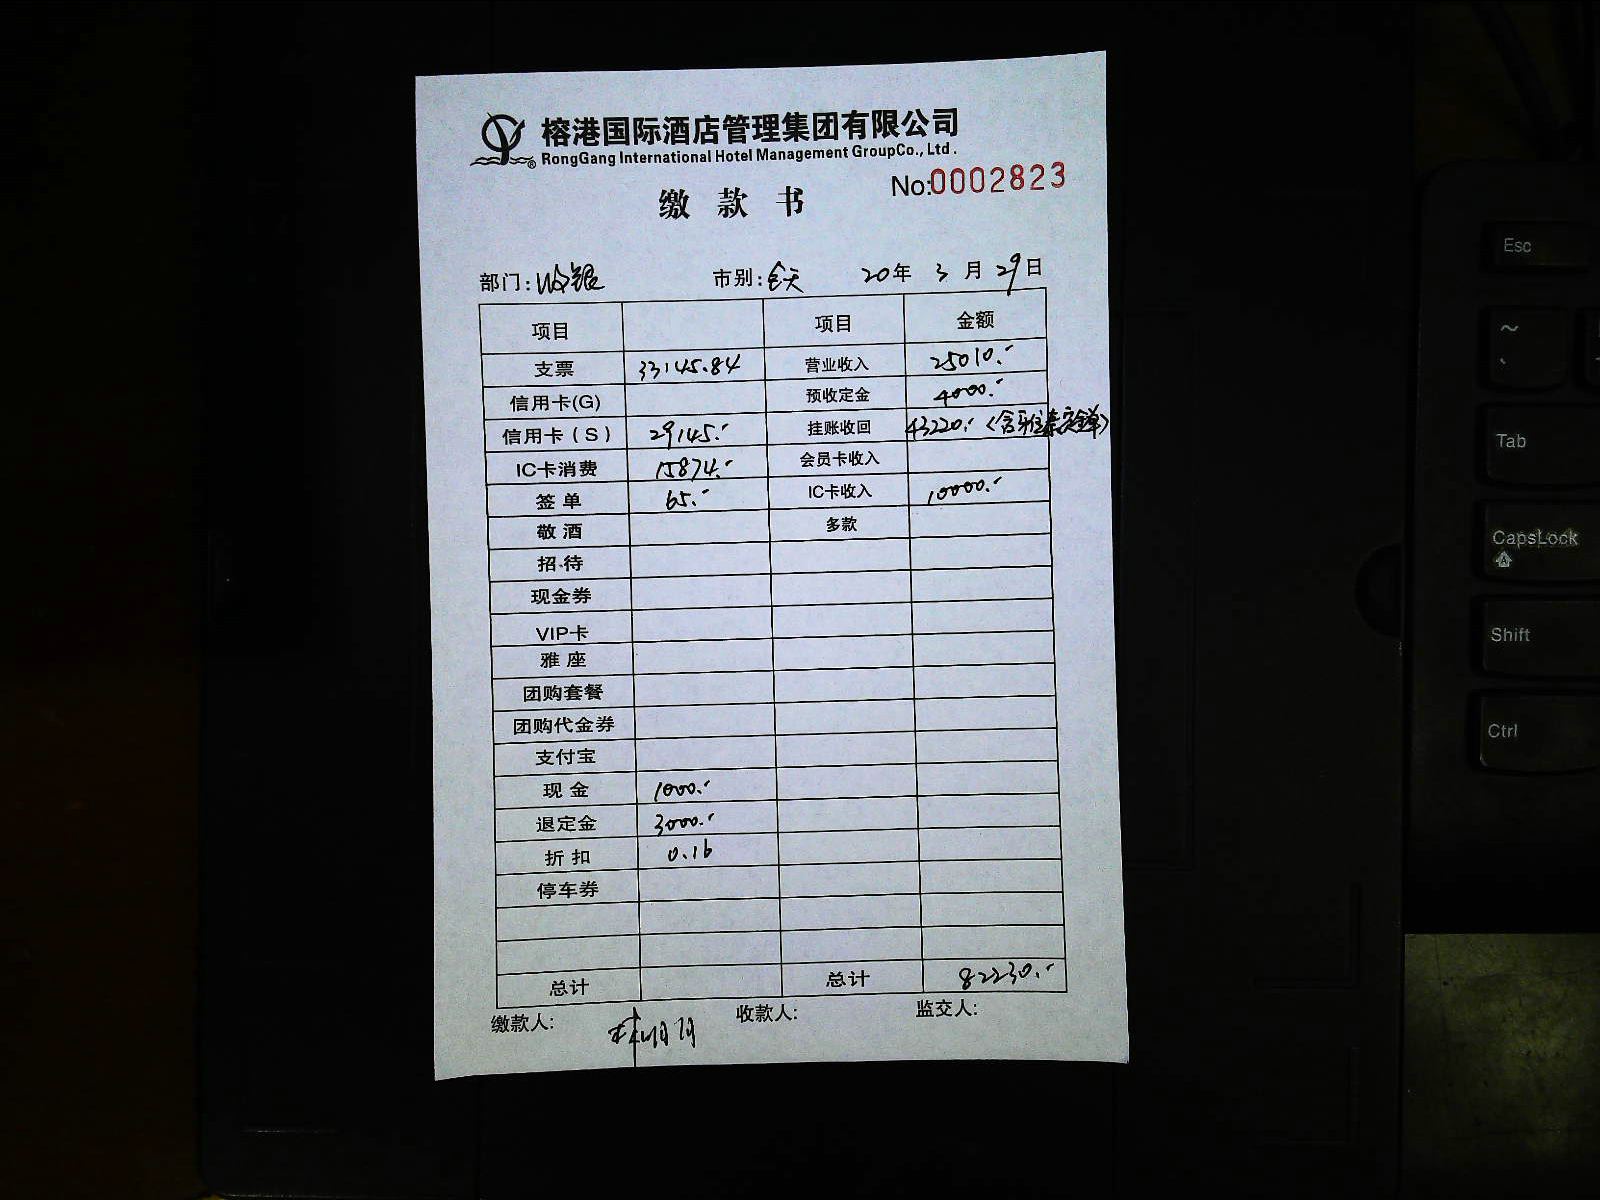 榕港国际酒店管理集团有限公司
RongGang International Hotel Management GroupCo., Ltd .
No:0002823
缴 款 书
部门: 收银 市别: 全天 20年 3 月 29日
项目 项目 金额
支票 33145.84 营业收入 25010.-
信用卡(G) 预收定金 4000.-
信用卡(S) 29145.- 挂账收回 43220.-
IC卡消费 15874.- 会员卡收入
签 单 65.- IC卡收入 10000.-
敬 酒 多款
招待
现金券
VIP卡
雅 座
团购套餐
团购代金券
支付宝
现 金 1000.-
退定金 3000.-
折 扣 0.16
停车券
总计 总计 82230.-
缴款人: 收款人: 监交人:
Esc
~
Tab
CapsLock
Shift
Ctrl